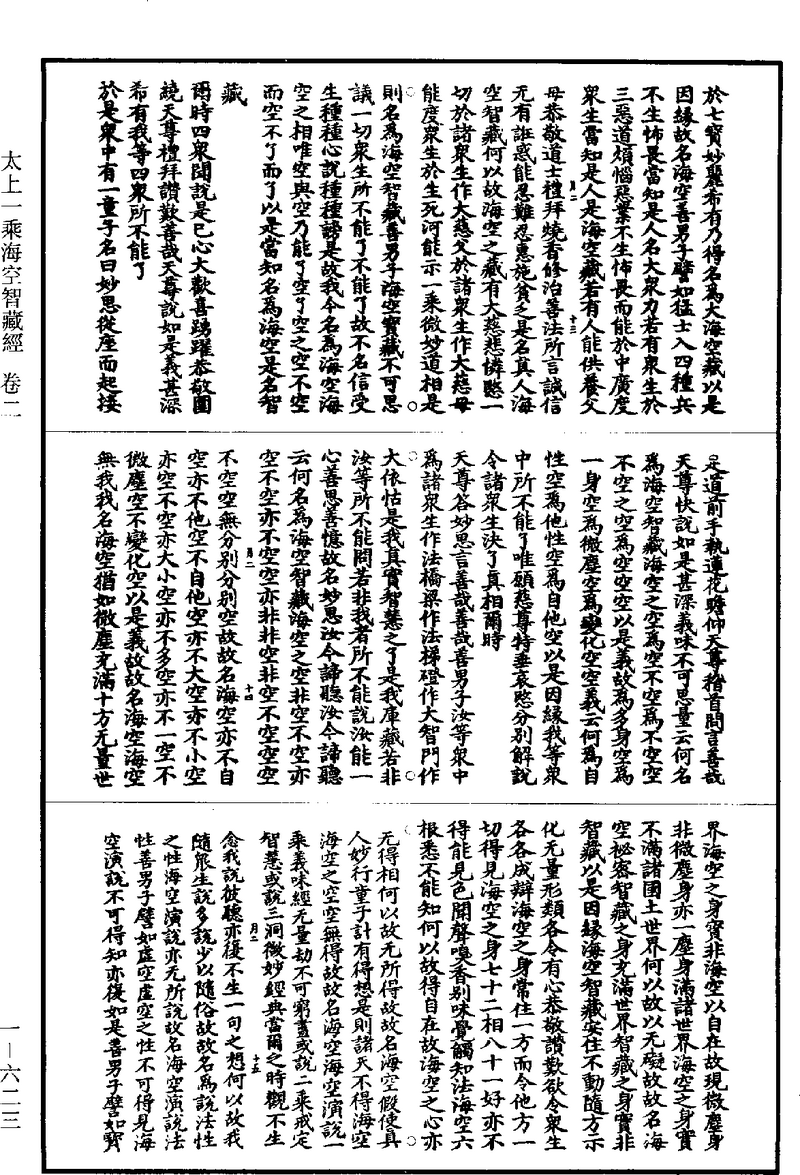 太上一乘海空智藏經 卷二
一—六二三
於七寶妙麗希有乃得名為大海空藏以是
因緣故名海空善男子譬如猛士入四種兵
不生怖畏當知是人名大眾力若有眾生於
三惡道煩惱惡業不生怖畏而能於中廣度
眾生當知是人是海空藏若有人能供養父
月二 十三
母恭敬道士禮拜燒香修治善法所言誠信
无有誑惑能忍難忍惠施貧乏是名真人海
空智藏何以故海空之藏有大慈悲憐愍一
切於諸眾生作大慈父於諸眾生作大慈母
能度眾生於生死河能示一乘微妙道相是
則名為海空智藏善男子海空寶藏不可思
議一切眾生所不能了不能了故不名信受
生種種心說種種謗是故我今名為海空海
空之相唯空與空乃能了空了空之空不空
而空不了而了以是當知名為海空是名智
藏
爾時四眾聞說是已心大歡喜踴躍恭敬圍
繞天尊禮拜讚歎善哉天尊說如是義甚深
希有我等四眾所不能了
於是眾中有一童子名曰妙思從座而起接
足道前手執蓮花瞻仰天尊稽首問言善哉
天尊快說如是甚深義味不可思量云何名
為海空智藏海空之空為空不空為不空空
不空之空為空空空以是義故為多身空為
一身空為微塵空為變化空空義云何為自
性空為他性空為自他空以是因緣我等眾
中所不能了唯願慈尊特垂哀愍分別解說
令諸眾生決了真相爾時
天尊答妙思言善哉善哉善男子汝等眾中
為諸眾生作法橋梁作法梯磴作大智門作
大依怙是我真實智慧之了是我庫藏若非
汝等所不能問若非我者所不能說汝能一
心善思善憶故名妙思汝今諦聽汝今諦聽
云何名為海空智藏海空之空非空不空亦
空不空亦不空空亦非非空非空不空空空
月二 十四
不空空無分別分別空故故名海空亦不自
空亦不他空不自他空亦不大空亦不小空
亦空不空亦大小空亦不多空亦不一空不
微塵空不變化空以是義故故名海空海空
無我我名海空猶如微塵充滿十方无量世
界海空之身實非海空以自在故現微塵身
非微塵身亦一塵身滿諸世界海空之身實
不滿諸國土世界何以故以无礙故故名海
空祕密智藏之身充滿世界智藏之身實非
智藏以是因緣海空智藏安住不動隨方示
化无量形類各令有心恭敬讚歎欲令眾生
各各成辯海空之身常住一方而令他方一
切得見海空之身七十二相八十一好亦不
得能見色聞聲嗅香別味覺觸知法海空六
根悉不能知何以故得自在故海空之心亦
无得相何以故无所得故故名海空假使真
人妙行童子計有得想是則諸天不得海空
海空之空空無得故故名海空海空演說一
乘義味經无量劫不可窮盡或說二乘戒定
智慧或說三洞微妙經典當爾之時觀不生
月二 十五
念我說彼聽亦復不生一句之想何以故我
隨能生說多說少以隨俗故故名為說法性
之性海空演說亦无所說故名海空演說法
性善男子譬如虛空虛空之性不可得見海
空演說不可得知亦復如是善男子譬如寶